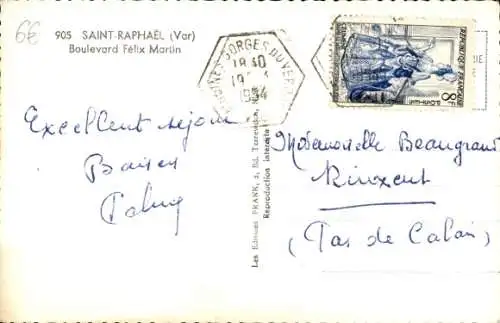 6€
905 SAINT-RAPHAËL (Var)
Boulevard Félix Martin
GORGES DU VERDON
18 40
1954
REPUBLIQUE FRANÇAISE
8F
Excellent séjour
Baisers
Les Editions FRANK, 2, Ed.
Reproduction interdite
Mademoiselle Beaugrand
Rinxent
(Pas de Calais)